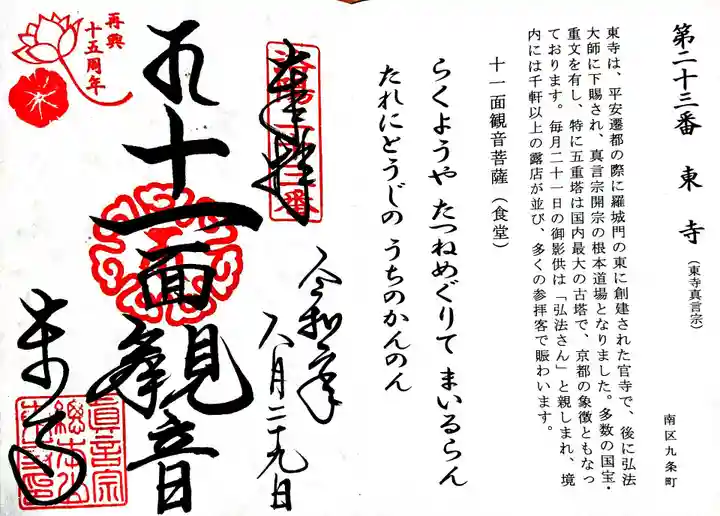 第二十三番 東寺(東寺真言宗)
南区九条町
東寺は、平安遷都の際に羅城門の東に創建された官寺で、後に弘法
大師に下賜され、真言宗開宗の根本道場となりました。多数の国宝・
重文を有し、特に五重塔は国内最大の古塔で、京都の象徴ともなっ
ております。毎月二十一日の御影供は「弘法さん」と親しまれ、境
内には千軒以上の露店が並び、多くの参拝客で賑わいます。
十一面観音菩薩(食堂)
らくようや たつねめぐりて まいるらん
たれにとうじの うちのかんのん
奉拝
令和
八月二十九日
十一面観音
東寺
再興
十五周年
真言宗
総本山